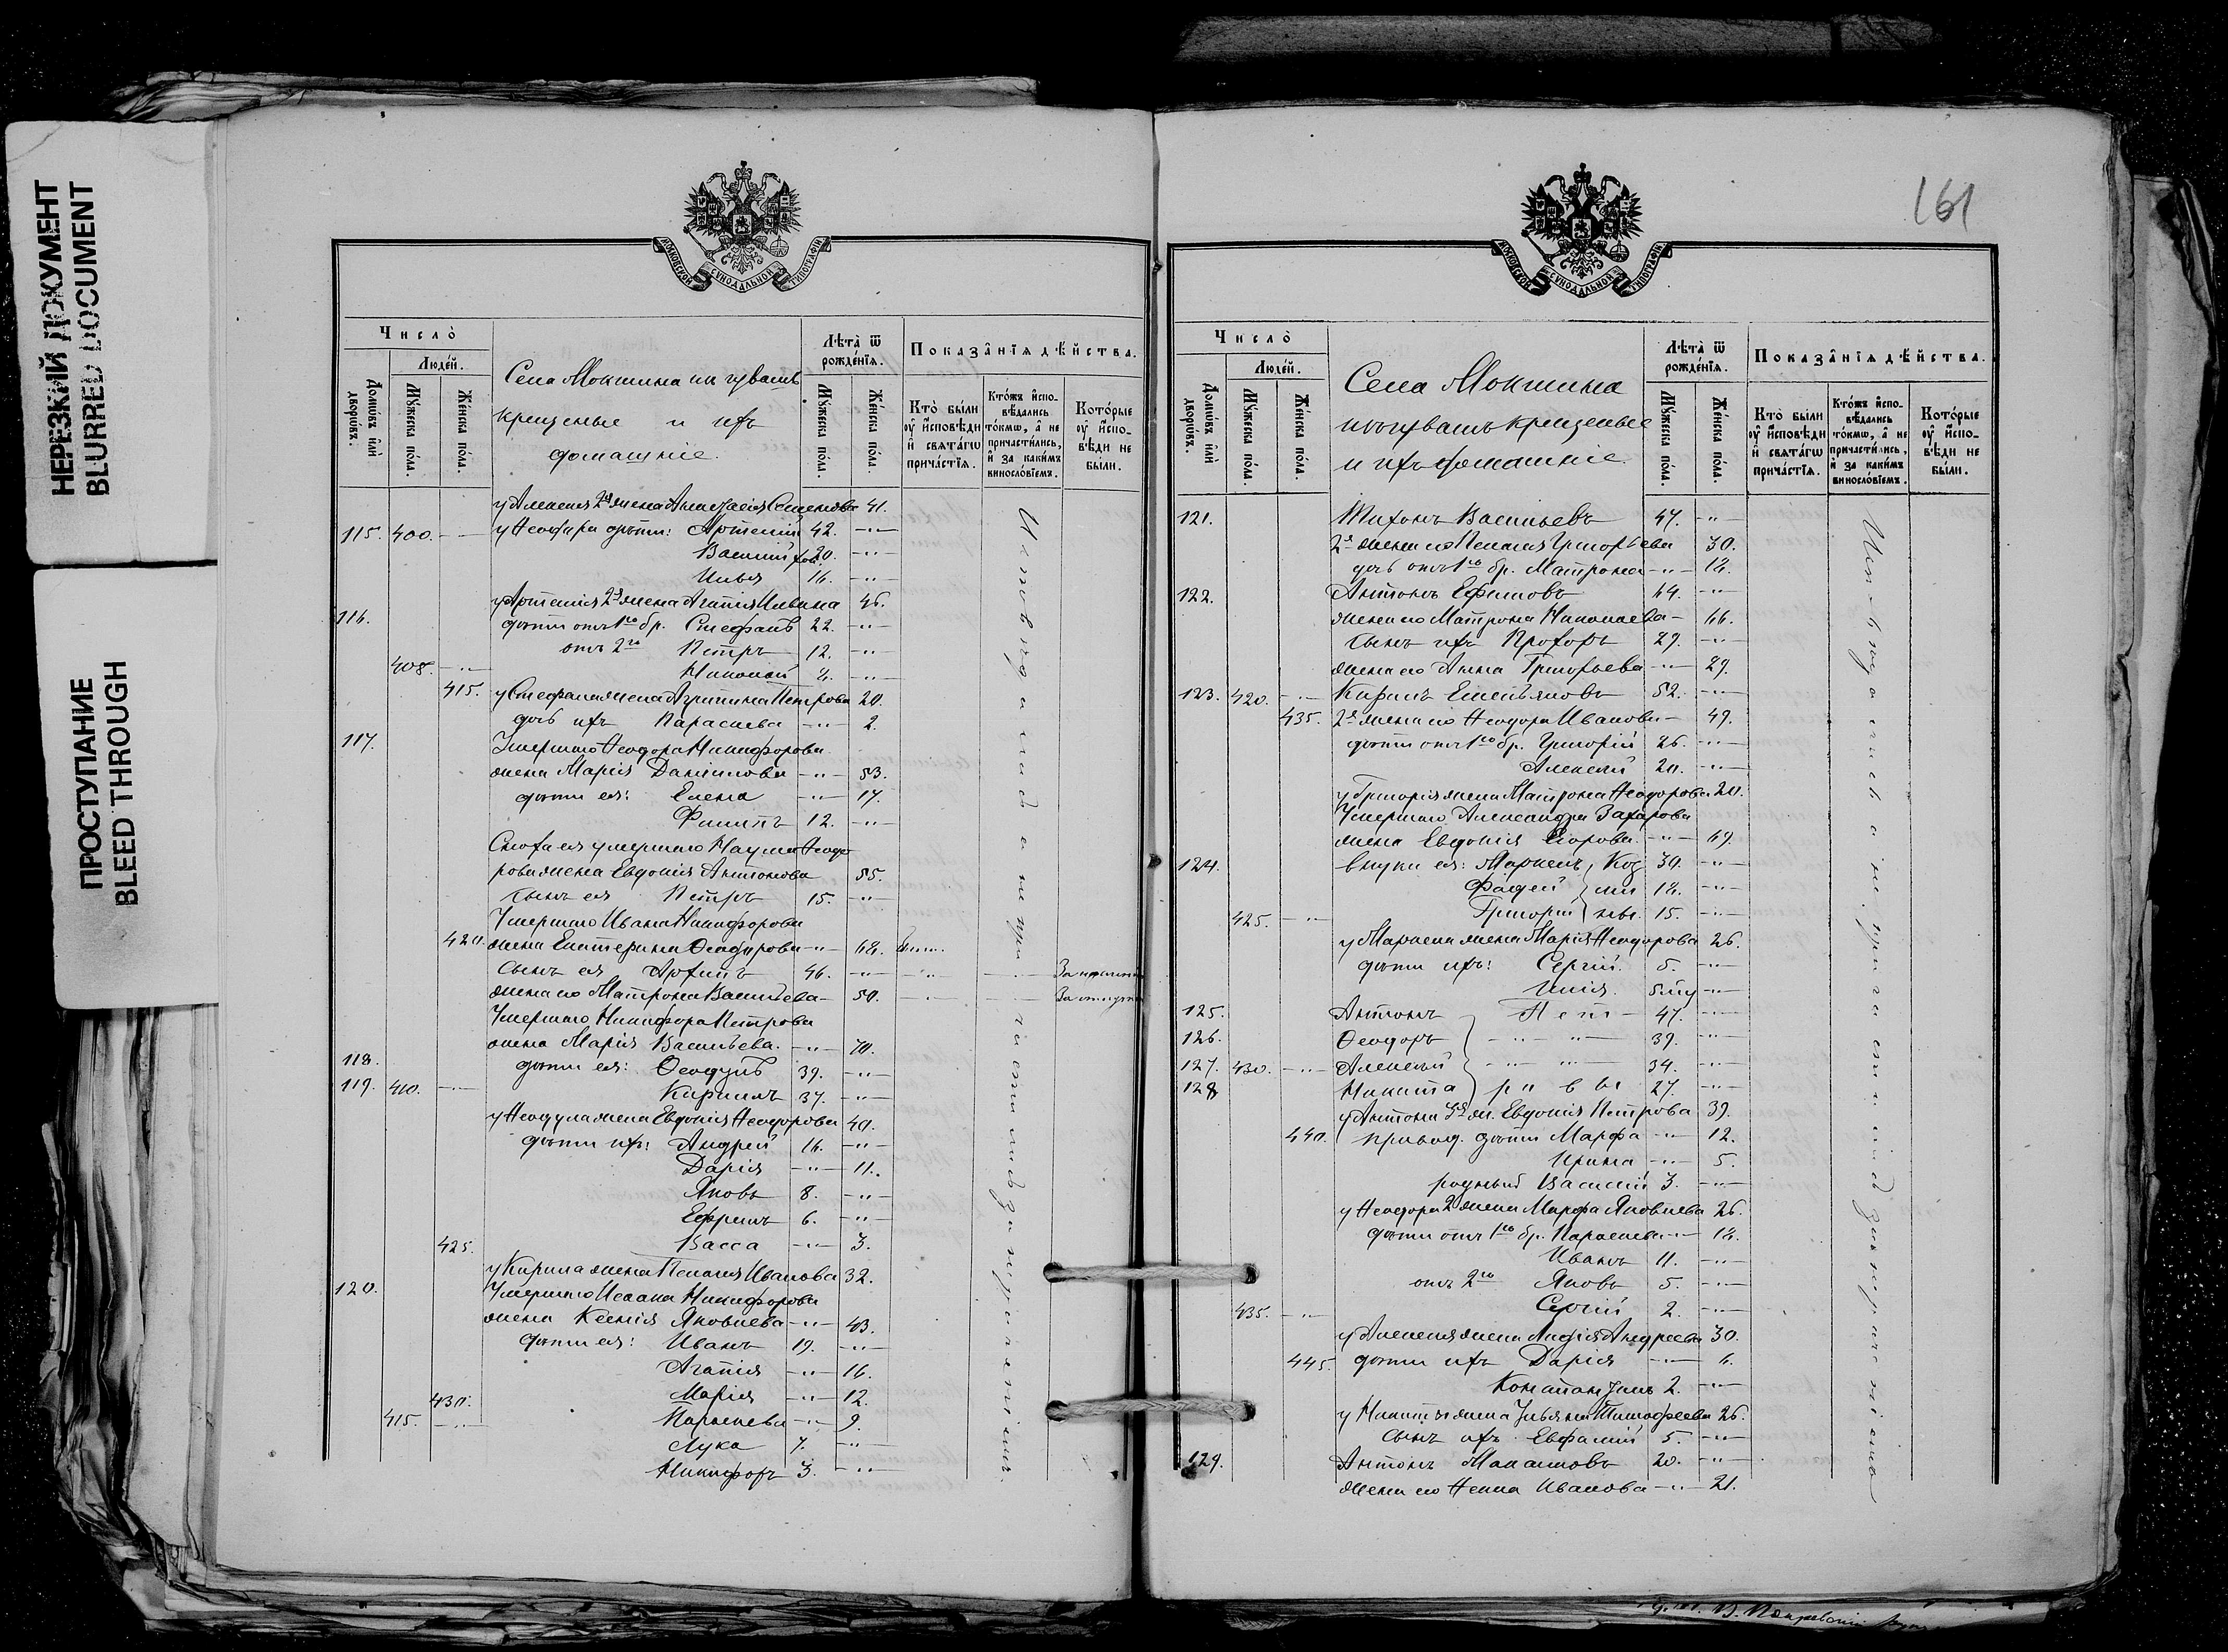 НЕРЕЗКИЙ ДОКУМЕНТ
BLURRED DOCUMENT
ПРОСТУПАНИЕ
BLEED THROUGH
МОСКОВСКОЙ СѴНОДАЛЬНОЙ ТИПОГРАФІИ
Число̀
Люде́й.
Домѡ́въ и҆лѝ дворѡ́въ.
Мꙋ́жеска по́ла.
Же́нска по́ла.
Села Мокшина изъ чувашъ
крещеные и ихъ
домашніе.
Лѣ́та ѿ рожде́нїѧ.
Мꙋ́жеска по́ла.
Же́нска по́ла.
Показа̂нїѧ дѣ́йства.
Кто̀ бы́ли оу҆ и҆́сповѣди и҆ свѧта́гѡ прича́стїѧ.
Кто́жъ и҆спо-вѣ́дались то́кмѡ, а҆ не причасти́лись, и҆ за каки́мъ виносло́вїемъ.
Кото́рые оу҆ и҆́спо-вѣди не бы́ли.
у Алексея 2я жена Анастасія Семенова 41.
115. 400. у Ѳеофара дѣти: Артемій 42.
Василій 20.
Илья 16.
у Артемія 2я жена Агапія Ильина 46.
116. дѣти отъ 1го бр. Стефанъ 22.
отъ 2го Петръ 12.
408. Николай 4.
415. у Стефана жена Агрипина Петрова 20.
дочь ихъ Параскева 2.
117. Умершаго Ѳеодора Никифорова
жена Марія Даніилова 53.
дѣти ея: Елена 17.
Филипъ 12.
Сноха ея умершаго Наума Ѳеодо
рова жена Евдокія Антонова 55.
сынъ ея Петръ 15.
Умершаго Ивана Никифорова
420. жена Екатерина Ѳеодорова 68.
сынъ ея Архипъ 46.
жена его Матрона Васильева 50.
Умершаго Никифора Петрова
жена Марія Васильева. 70.
118. дѣти ея: Ѳеодулъ 39.
119. 410. Кириллъ 37.
у Ѳеодула жена Евдокія Ѳеодорова 40.
дѣти ихъ: Андрей 16.
Дарія 11.
Яковъ 8.
Ефремъ 6.
425. Васса 3.
у Кирила жена Пелагея Иванова 32.
120. Умершаго Исаака Никифорова
жена Ксенія Яковлева 43.
дѣти ея: Иванъ 19.
Агапія 16.
430. Марія 12.
415. Параскева 9.
Лука 7.
Никифоръ 3.
161
МОСКОВСКОЙ СѴНОДАЛЬНОЙ ТИПОГРАФІИ
Число̀
Люде́й.
Домѡ́въ и҆лѝ дворѡ́въ.
Мꙋ́жеска по́ла.
Же́нска по́ла.
Села Мокшина
изъ чувашъ крещеные
и ихъ домашніе.
Лѣ́та ѿ рожде́нїѧ.
Мꙋ́жеска по́ла.
Же́нска по́ла.
Показа̂нїѧ дѣ́йства.
Кто̀ бы́ли оу҆ и҆́сповѣди и҆ свѧта́гѡ прича́стїѧ.
Кто́жъ и҆спо-вѣ́дались то́кмѡ, а҆ не причасти́лись, и҆ за каки́мъ виносло́вїемъ.
Кото́рые оу҆ и҆́спо-вѣди не бы́ли.
121. Тихонъ Васильевъ 47.
2я жена его Пелагея Григорьева 30.
дочь отъ 1го бр. Матрона 18.
122. Антонъ Ефимовъ 64.
жена его Матрона Николаева 66.
сынъ ихъ Прохоръ 29.
жена его Анна Григорьева 29.
123. 420. Кирилъ Емельяновъ 52.
435. 2я жена его Ѳеодора Иванова 49.
дѣти отъ 1го бр. Григорій 26.
Алексей 20.
у Григорія жена Матрона Ѳеодорова 20.
Умершаго Александра Захарова
жена Евдокія Егорова 69.
124. внуки ея: Маркелъ 30.
Фадей 18.
425. Григорій 15.
у Маркела жена Марія Ѳеодорова 26.
дѣти ихъ: Сергій 5.
Илія.
125. Антонъ Пет 47.
126. Ѳеодоръ 39.
127. 430. Алексей 34.
128 Никита ровы 27.
у Антона 3я ж. Евдокія Петрова 39.
440. привод. дѣти Марфа 12.
Ирина 5.
родный Василій 3.
у Ѳеодора 2 жена Марфа Яковлева 26.
дѣти отъ 1го бр. Параскева 18.
Иванъ 11.
отъ 2го Яковъ 5.
435. Сергій 2.
у Алексея жена Лидія Андреева 30.
445. дѣти ихъ Дарія 6.
Константинъ 2.
у Никиты жена Ульяна Тимофеева 26.
сынъ ихъ Евфимій 5.
129. Антонъ 20.
жена его Иванова 21.